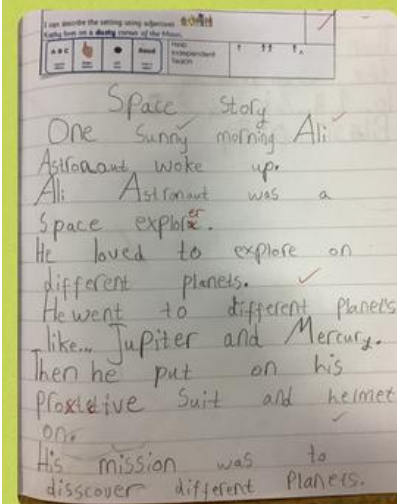 I can describe the setting using adjectives
Kathy lives on a dusty corner of the Moon.
A B C
Read
Help
Independent
Teach
Space story
One Sunny morning Ali
Astronaut woke up.
Ali Astronaut was a
Space explorer.
He loved to explore on
different planets.
He went to different Planets
like... Jupiter and Mercury.
Then he put on his
Proxtetive Suit and helmet
on.
His mission was to
disscover different Planets.